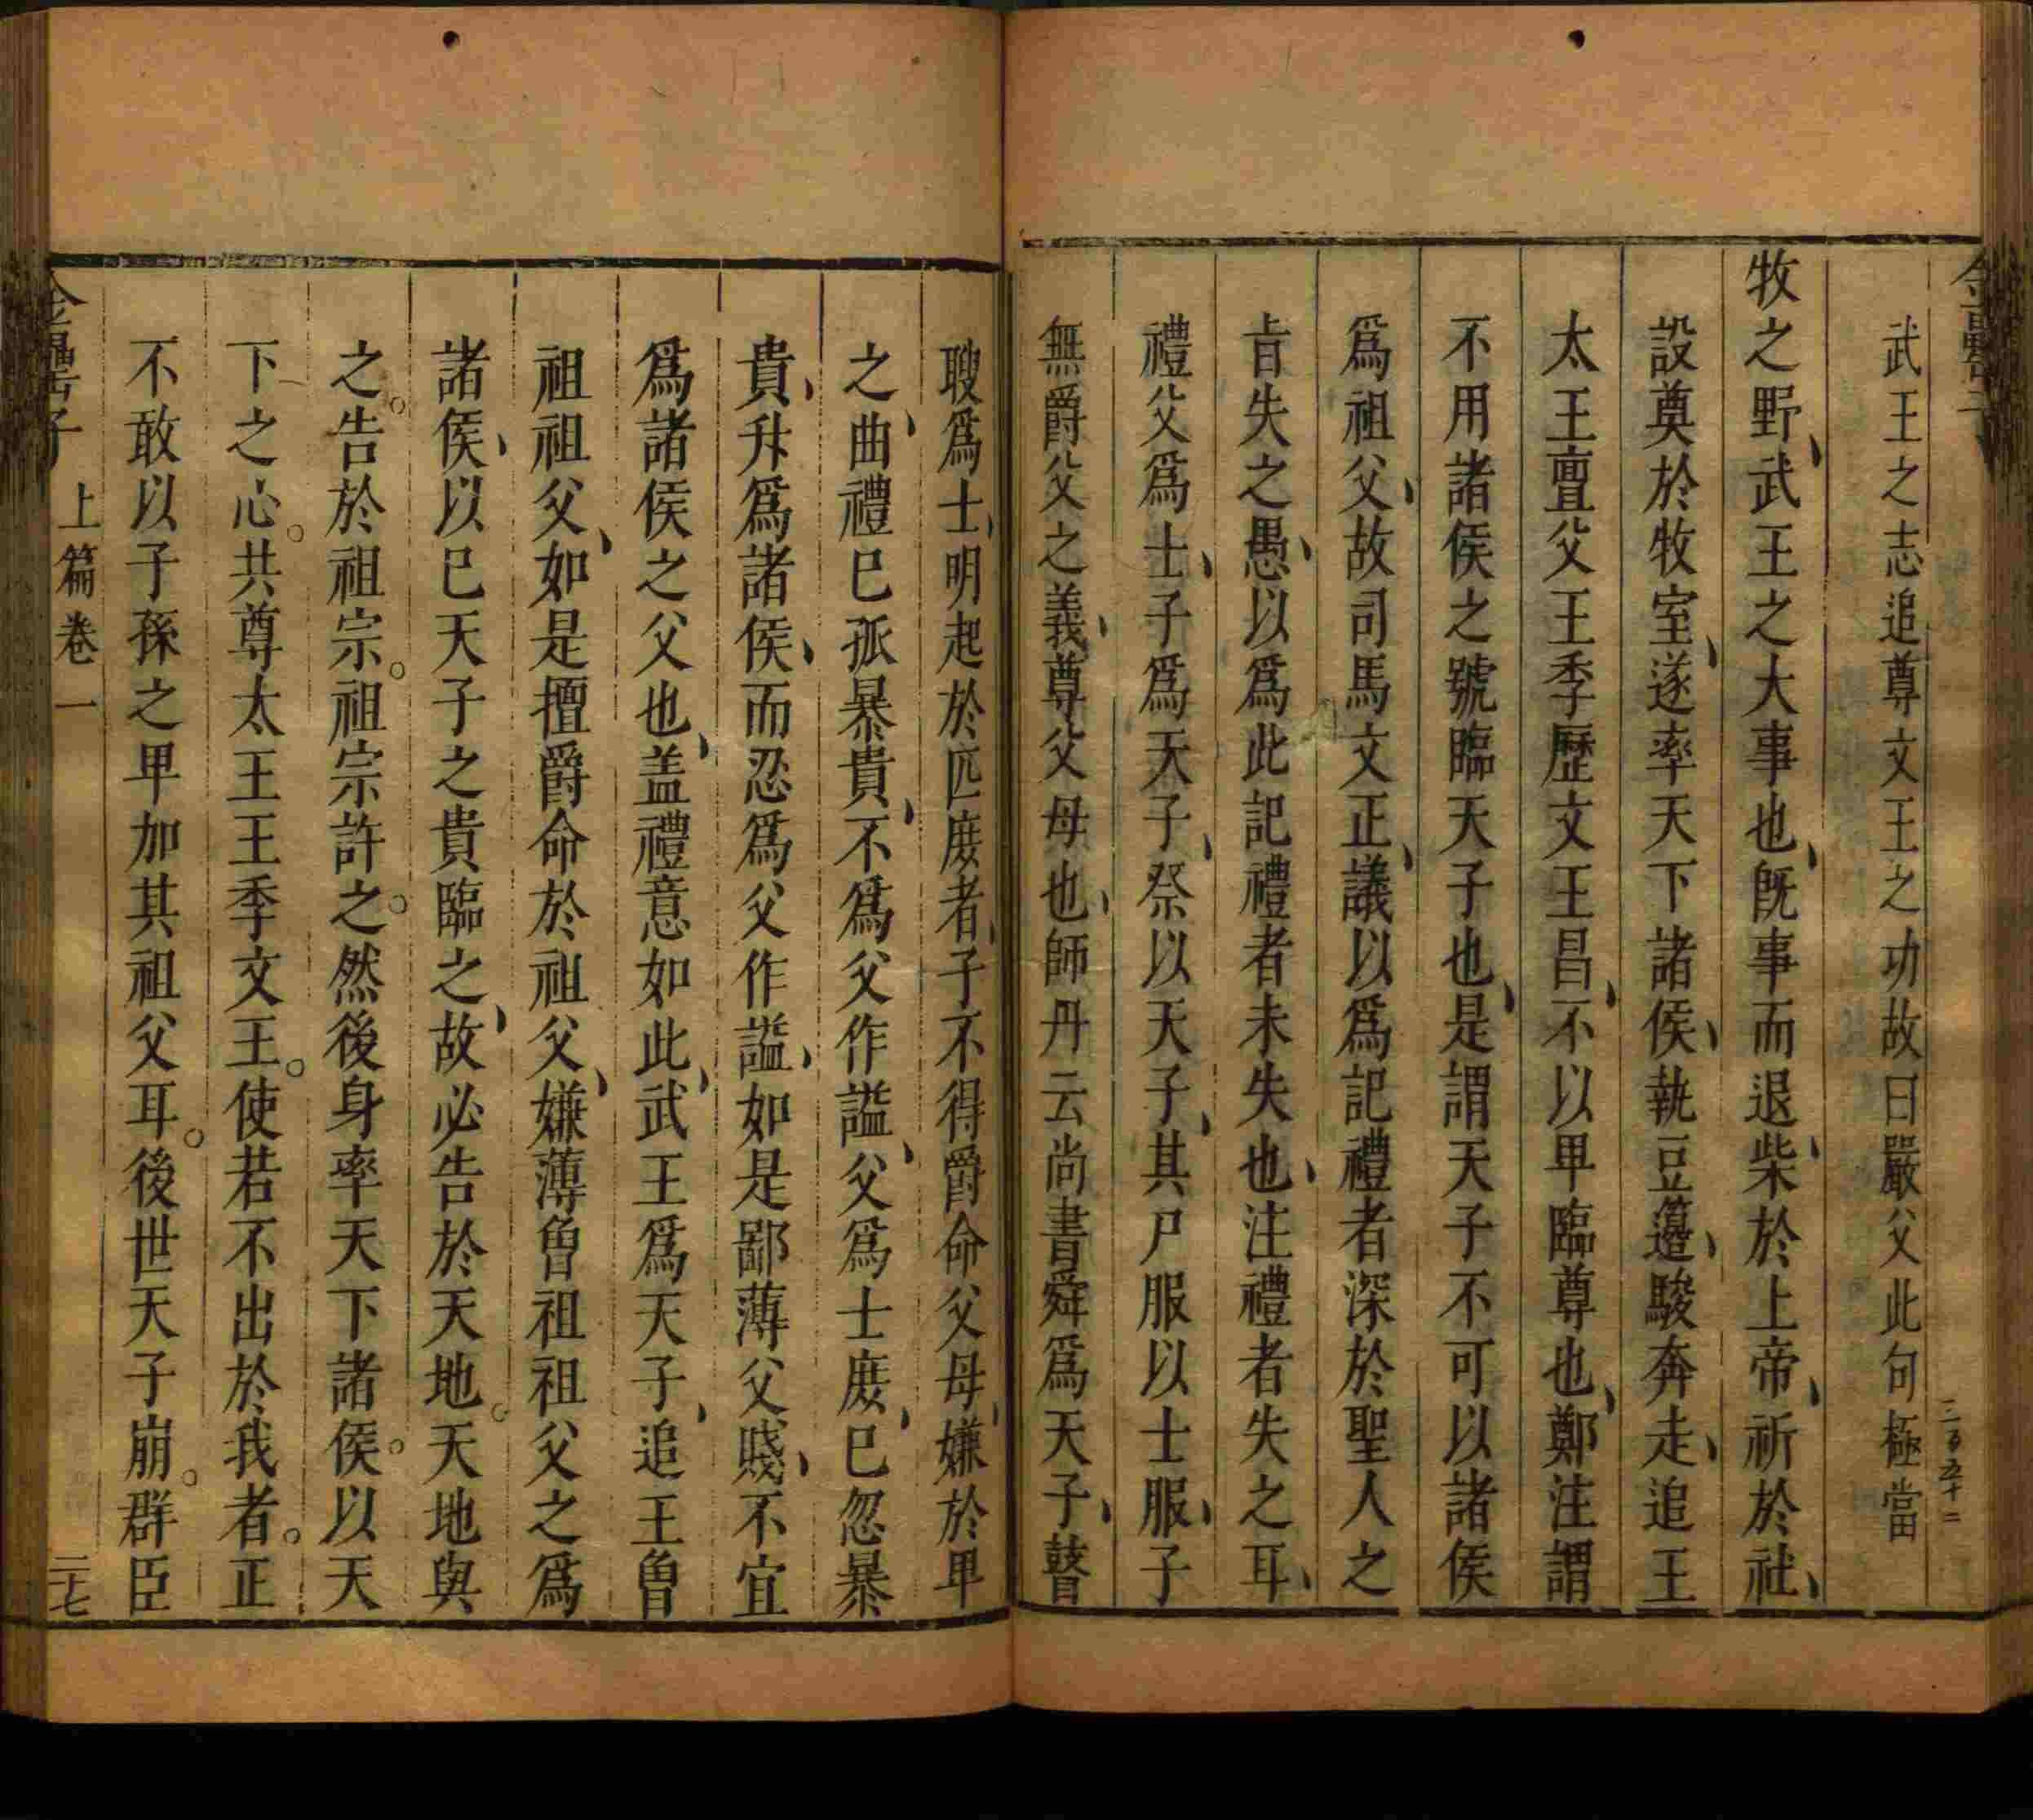 武王之志追尊文王之功故曰嚴父此句極當
牧之野武王之大事也旣事而退柴於上帝祈於社
設奠於牧室遂率天下諸侯執豆籩駿奔走追王
太王亶父王季歷文王昌不以𤰞臨尊也鄭注謂
不用諸侯之號臨天子也是謂天子不可以諸侯
爲祖父故司馬文正議以爲記禮者深於聖人之
㫖失之愚以爲此記禮者未失也注禮者失之耳
禮父爲士子爲天子祭以天子其尸服以士服子
無爵父之義尊父母也師丹云尚書舜爲天子瞽
瞍爲士明起於匹庻者子不得爵命父母嫌於𤰞
之曲禮巳孤暴貴不爲父作謚父爲士庻巳忽暴
貴升爲諸侯而忍爲父作謚如是鄙薄父賤不宜
爲諸侯之父也盖禮意如此武王爲天子追王曾
祖祖父如是擅爵命於祖父嫌薄曾祖祖父之爲
諸侯以巳天子之貴臨之故必告於天地。天地與
之。告於祖宗。祖宗許之。然後身率天下諸侯。以天
下之心。共尊太王王季文王。使若不出於我者。正
不敢以子孫之𤰞加其祖父耳。後世天子崩。群臣
金罍子 上篇卷一 二十七